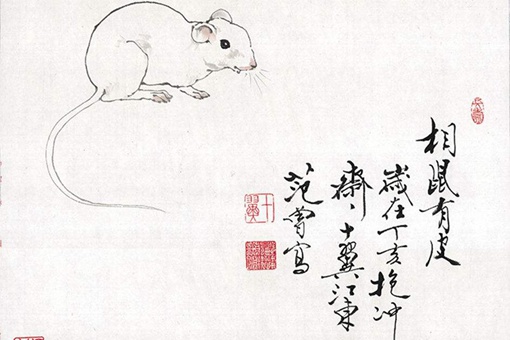 相鼠有皮
歲在丁亥抱冲
齋丶十翼江東
范曾寫
十翼